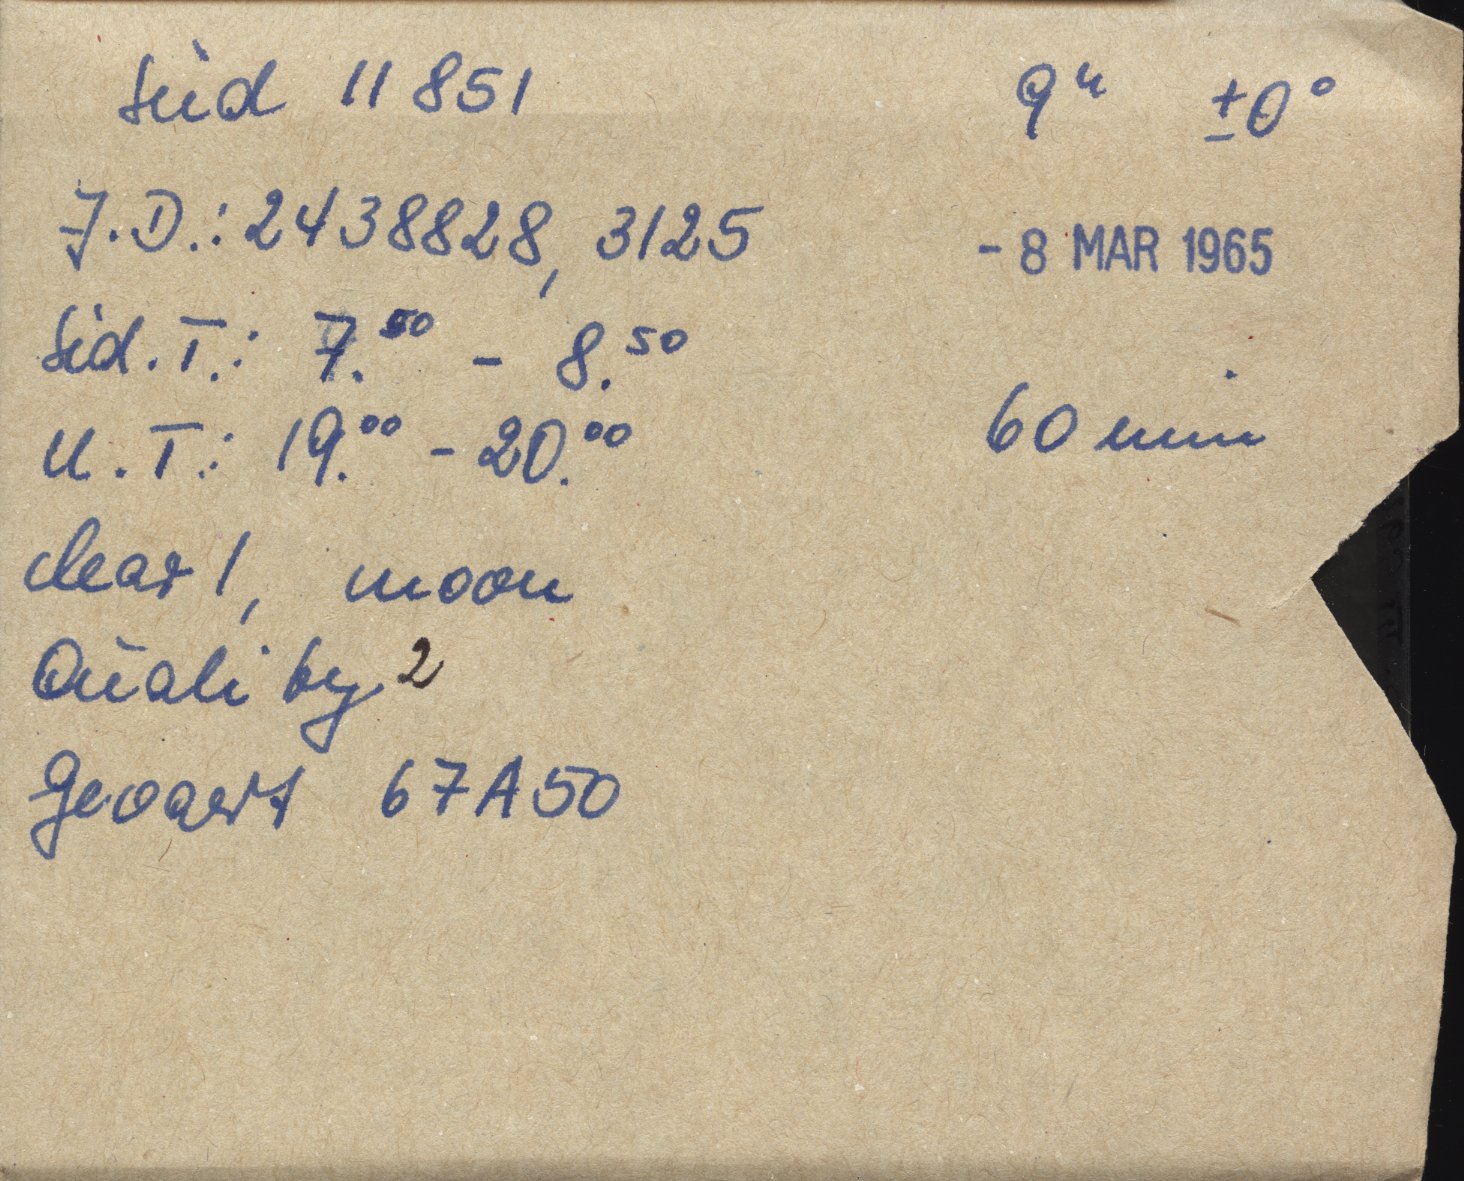 Süd 11851 9ʰ ±0°
J.D.: 2438828,3125 - 8 MAR 1965
Sid.T.: 7.⁵⁰ - 8.⁵⁰
U.T.: 19.⁰⁰ - 20.⁰⁰ 60 min
clear!, moon
Quality 2
Gevaert 67A50